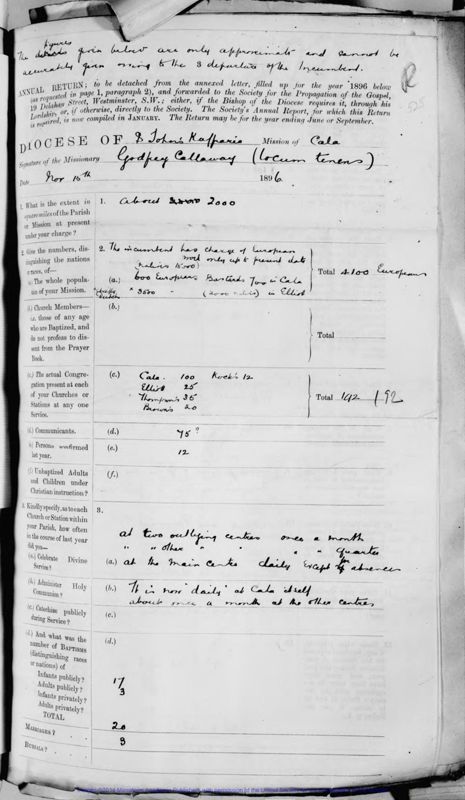 The figures given below are only approximate and cannot be
accurately given owing to the departure of the Incumbent.
ANNUAL RETURN; to be detached from the annexed letter, filled up for the year 1896 below
(as requested in page 1, paragraph 2), and forwarded to the Society for the Propagation of the Gospel,
19 Delahay Street, Westminster, S.W.; either, if the Bishop of the Diocese requires it, through his
Lordship, or, if otherwise, directly to the Society. The Society's Annual Report, for which this Return
is required, is now compiled in JANUARY. The Return may be for the year ending June or September.
DIOCESE OF St John's Kaffraria Mission of Cala
Signature of the Missionary Godfrey Callaway (locum tenens)
Date Nov 1896.
1. What is the extent in square miles of the Parish or Mission at present under your charge?
1. about 2000
2. Give the numbers, distinguishing the nations or races, of—
2. The incumbent has charge of European
work only up to present date
(a.) The whole population of your Mission.
(a.) 600 Europeans in Cala
3500 in Elliot
Total 4100 Europeans
(b.) Church Members—i.e. those of any age who are Baptized, and do not profess to dissent from the Prayer Book.
(b.)
Total
(c.) The actual Congregation present at each of your Churches or Stations at any one Service.
(c.) Cala. 100 Rock's 12
Elliot 25
Thompson's 35
Brown's 20
Total 192 192
(d.) Communicants.
(d.) 75?
(e.) Persons confirmed last year.
(e.) 12
(f.) Unbaptized Adults and Children under Christian instruction?
(f.)
3. Kindly specify, as to each Church or Station within your Parish, how often in the course of last year did you—
3.
at two outlying centres once a month
" " other " " " quarter
(a.) Celebrate Divine Service?
(a.) at the main centre daily except for absences
(b.) Administer Holy Communion?
(b.) It is now "daily" at Cala itself
about once a month at the other centres
(c.) Catechise publicly during Service?
(c.)
(d.) And what was the number of BAPTISMS (distinguishing races or nations) of
(d.)
Infants publicly? 17
Adults publicly? 3
Infants privately?
Adults privately?
TOTAL 20
MARRIAGES? 3
BURIALS?